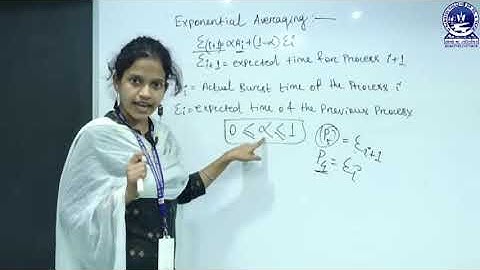 Exponential Averaging:—
Ei+1= αAi+(1-α) Ei
Ei+1 = expected time for Process i+1
i = Actual Burst time of the Process i
Ei = expected time of the Previous Process
0 ≤ α ≤ 1
= Ei+1
P4 = Ei